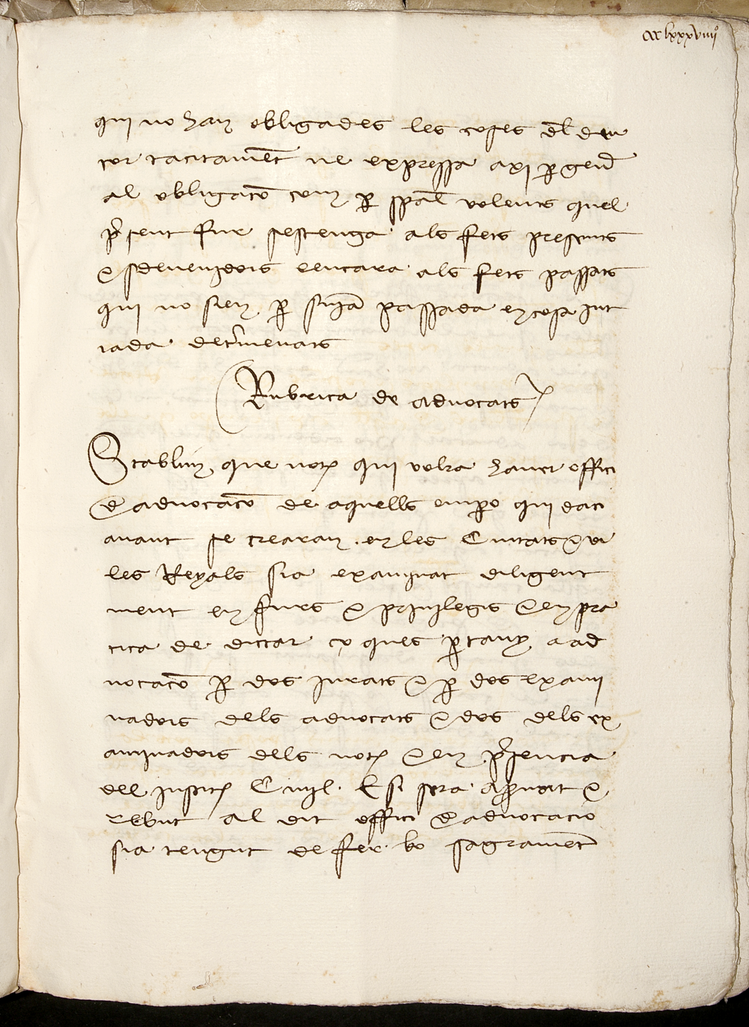 cclxxxviiijº
qui no han obligades les coses dl deu
tor tacitament ne expressa axi p gen̄
al obligaco com p spal volents quel
present fur sestenga als fets presents
e sdevenidors e encara als fets passats
qui no sien p snia passada en cosa jut
iada determenats
Rubrica de advocats
Stablim que not qui volra haver offici
de advocaco de aquells empo qui daci
avant se crearan en les Ciutats e vi
les Reyals sia examinat diligent
ment en furs e privilegis e en pra
tica de dictar ço ques ptany a ad
vocaco p dos jurats e p dos exami
nadors dels advocats e dos dels ex
aminadors dels not e en presencia
del justicia Civil E si sera aprovat e
rebut al dit offici de advocacio
sia tengut de fer bo sagrament